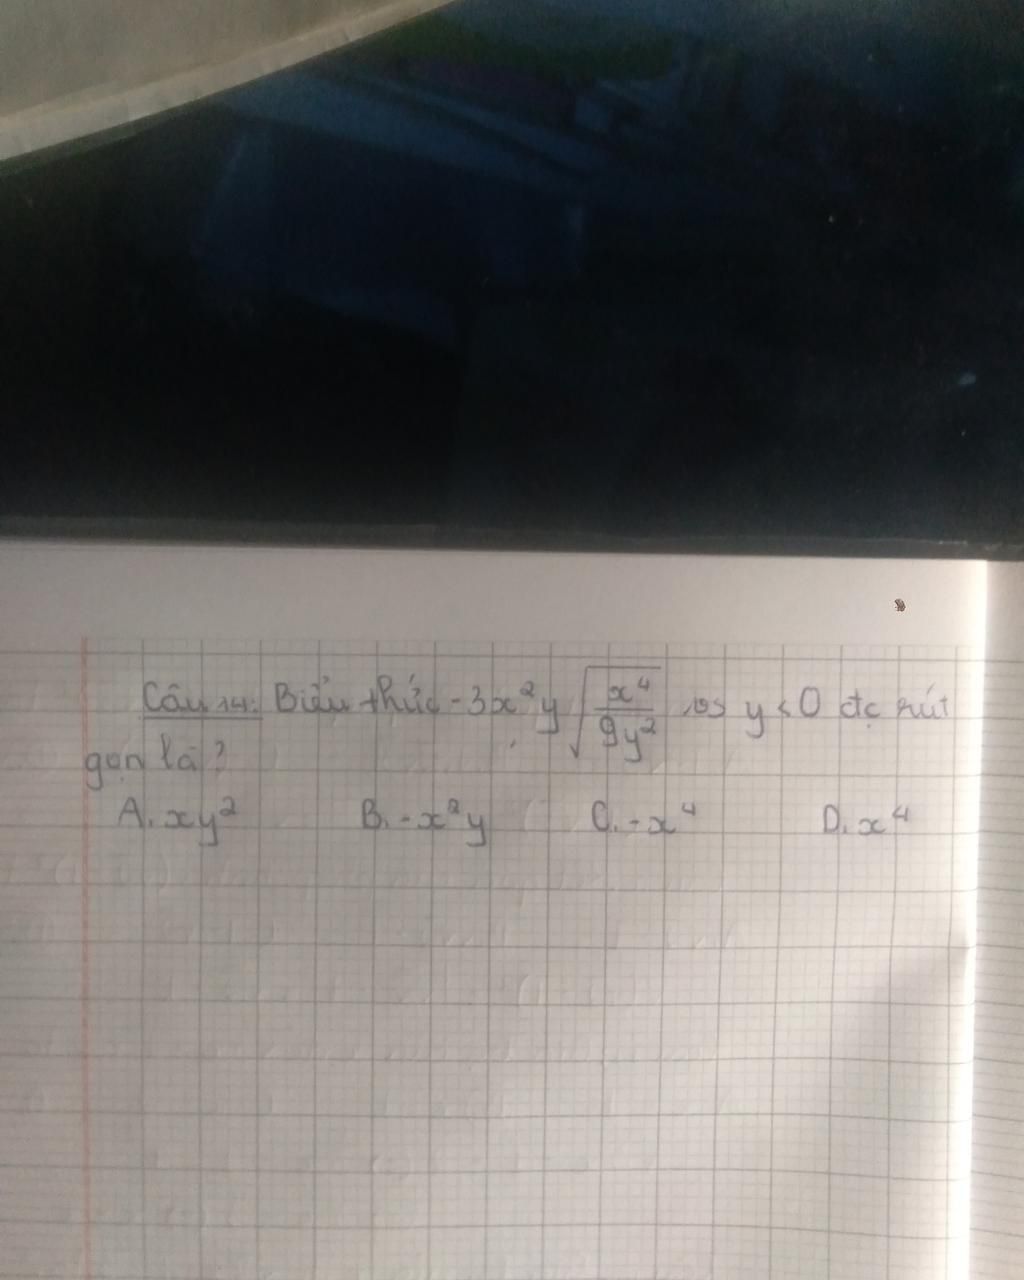 Câu 14: Biểu thức -3x²y√(x⁴/9y²) vs y < 0 đc rút
gọn là?
A. xy² B. -x²y C. -x⁴ D. x⁴